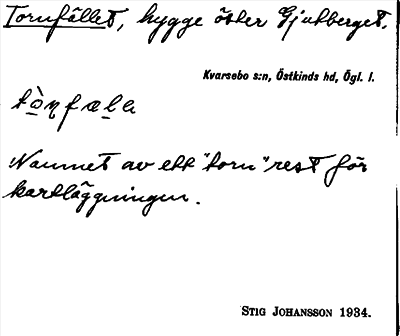 Tornfållet, hygge öster Gjutberget.
Kvarsebo s:n, Östkinds hd, Ögl. l.
tò̱ṇfæḻa
Namnet av ett "torn" rest för
kartläggningen.
STIG JOHANSSON 1934.